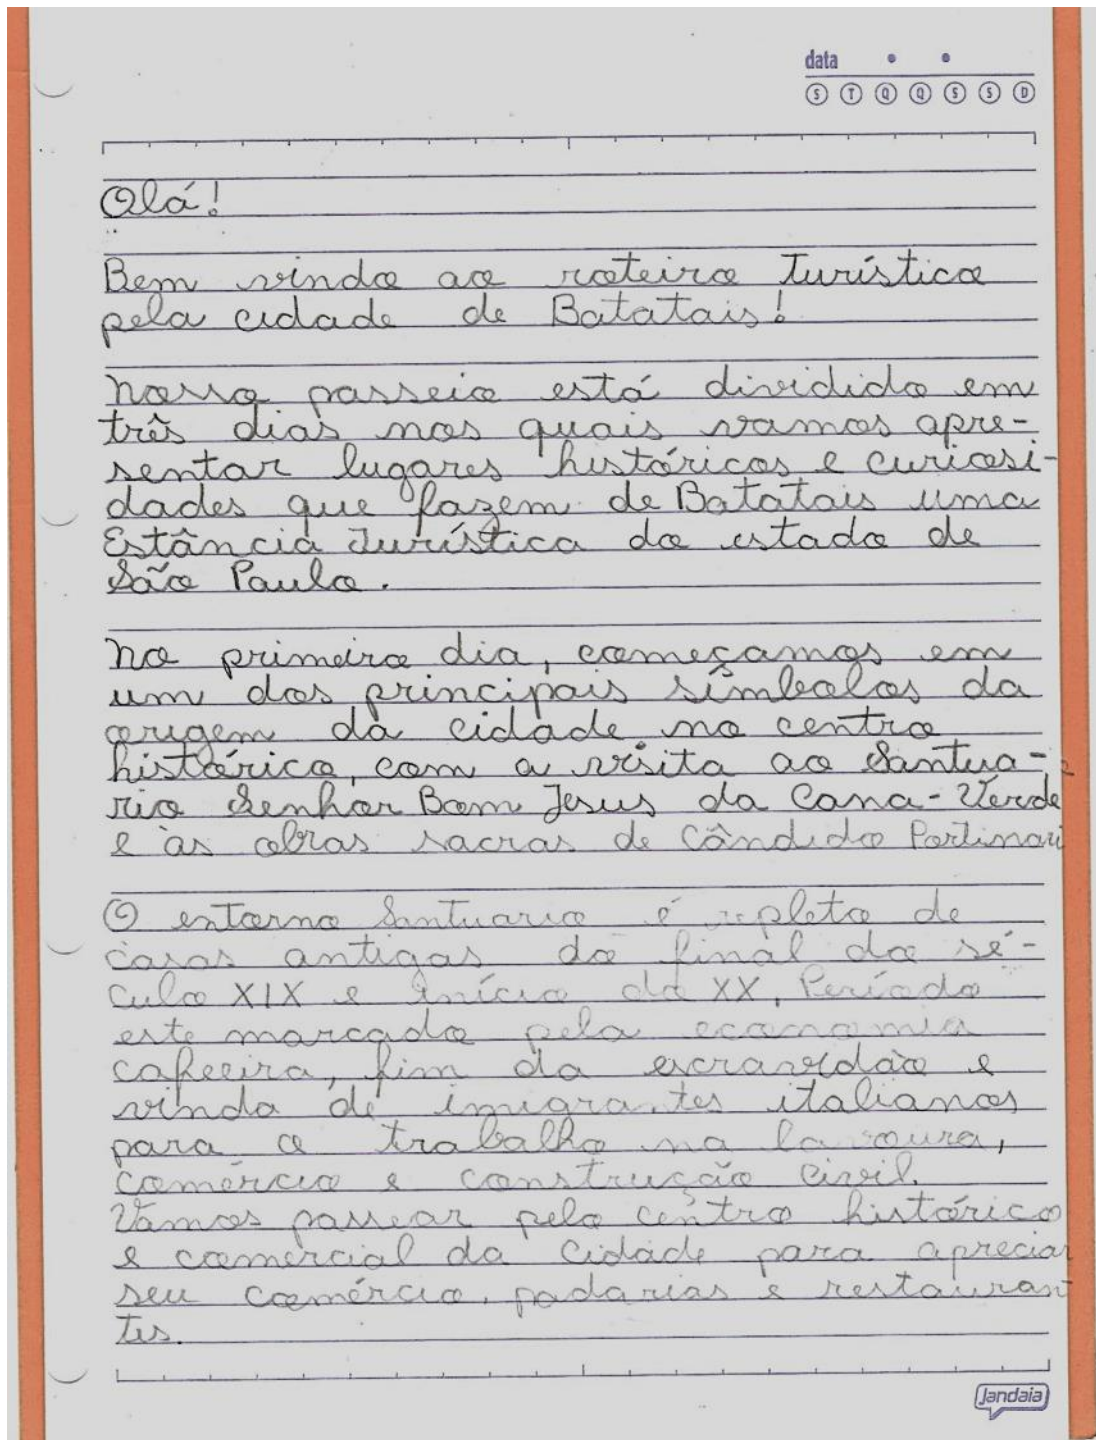 data
S T Q Q S S D
Olá!
Bem vindo ao roteiro Turístico
pela cidade de Batatais!
Nosso passeio está dividido em
três dias nos quais vamos apre-
sentar lugares históricos e curiosi-
dades que fazem de Batatais uma
Estância Turística do estado de
São Paulo.
No primeiro dia, começamos em
um dos principais símbolos da
origem da cidade no centro
histórico, com a visita ao Santua-
rio Senhor Bom Jesus da Cana-Verde
e às obras sacras de Cândido Portinari
O entorno Santuario é repleto de
casas antigas do final do sé-
culo XIX e início do XX, Período
este marcado pela economia
cafeeira, fim da escravidão e
vinda de imigrantes italianos
para o trabalho na lavoura,
comércio e construção civil.
Vamos passear pelo centro histórico
e comercial da cidade para apreciar
seu comércio, padarias e restauran
tes.
Jandaia